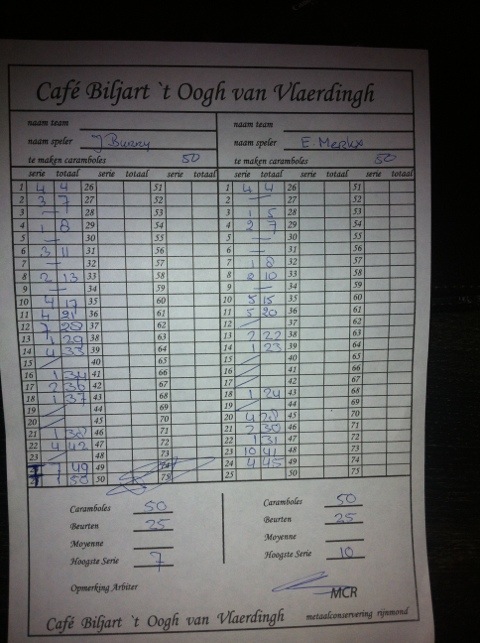 Café Biljart `t Oogh van Vlaerdingh
naam team naam team
naam speler J Bunny naam speler E. Merkx
te maken caramboles 50 te maken caramboles 50
serie totaal serie totaal serie totaal serie totaal serie totaal serie totaal
1 4 4 26 51 1 4 4 26 51
2 3 7 27 52 2 — 27 52
3 — 7 28 53 3 1 5 28 53
4 1 8 29 54 4 2 7 29 54
5 — 30 55 5 — 30 55
6 3 11 31 56 6 — 31 56
7 — 32 57 7 1 8 32 57
8 2 13 33 58 8 2 10 33 58
9 — 34 59 9 — 34 59
10 4 17 35 60 10 5 15 35 60
11 4 21 36 61 11 5 20 36 61
12 7 28 37 62 12 37 62
13 1 29 38 63 13 2 22 38 63
14 4 33 39 64 14 1 23 39 64
15 40 65 15 40 65
16 1 34 41 66 16 41 66
17 2 36 42 67 17 42 67
18 1 37 43 68 18 1 24 43 68
19 44 69 19 44 69
20 45 70 20 4 28 45 70
21 1 38 46 71 21 2 30 46 71
22 4 42 47 72 22 1 31 47 72
23 48 73 23 10 41 48 73
7 49 49 74 24 4 45 49 74
1 50 50 75 25 50 75
Caramboles 50 Caramboles 50
Beurten 25 Beurten 25
Moyenne Moyenne
Hoogste Serie 7 Hoogste Serie 10
Opmerking Arbiter MCR
Café Biljart `t Oogh van Vlaerdingh metaalconservering rijnmond